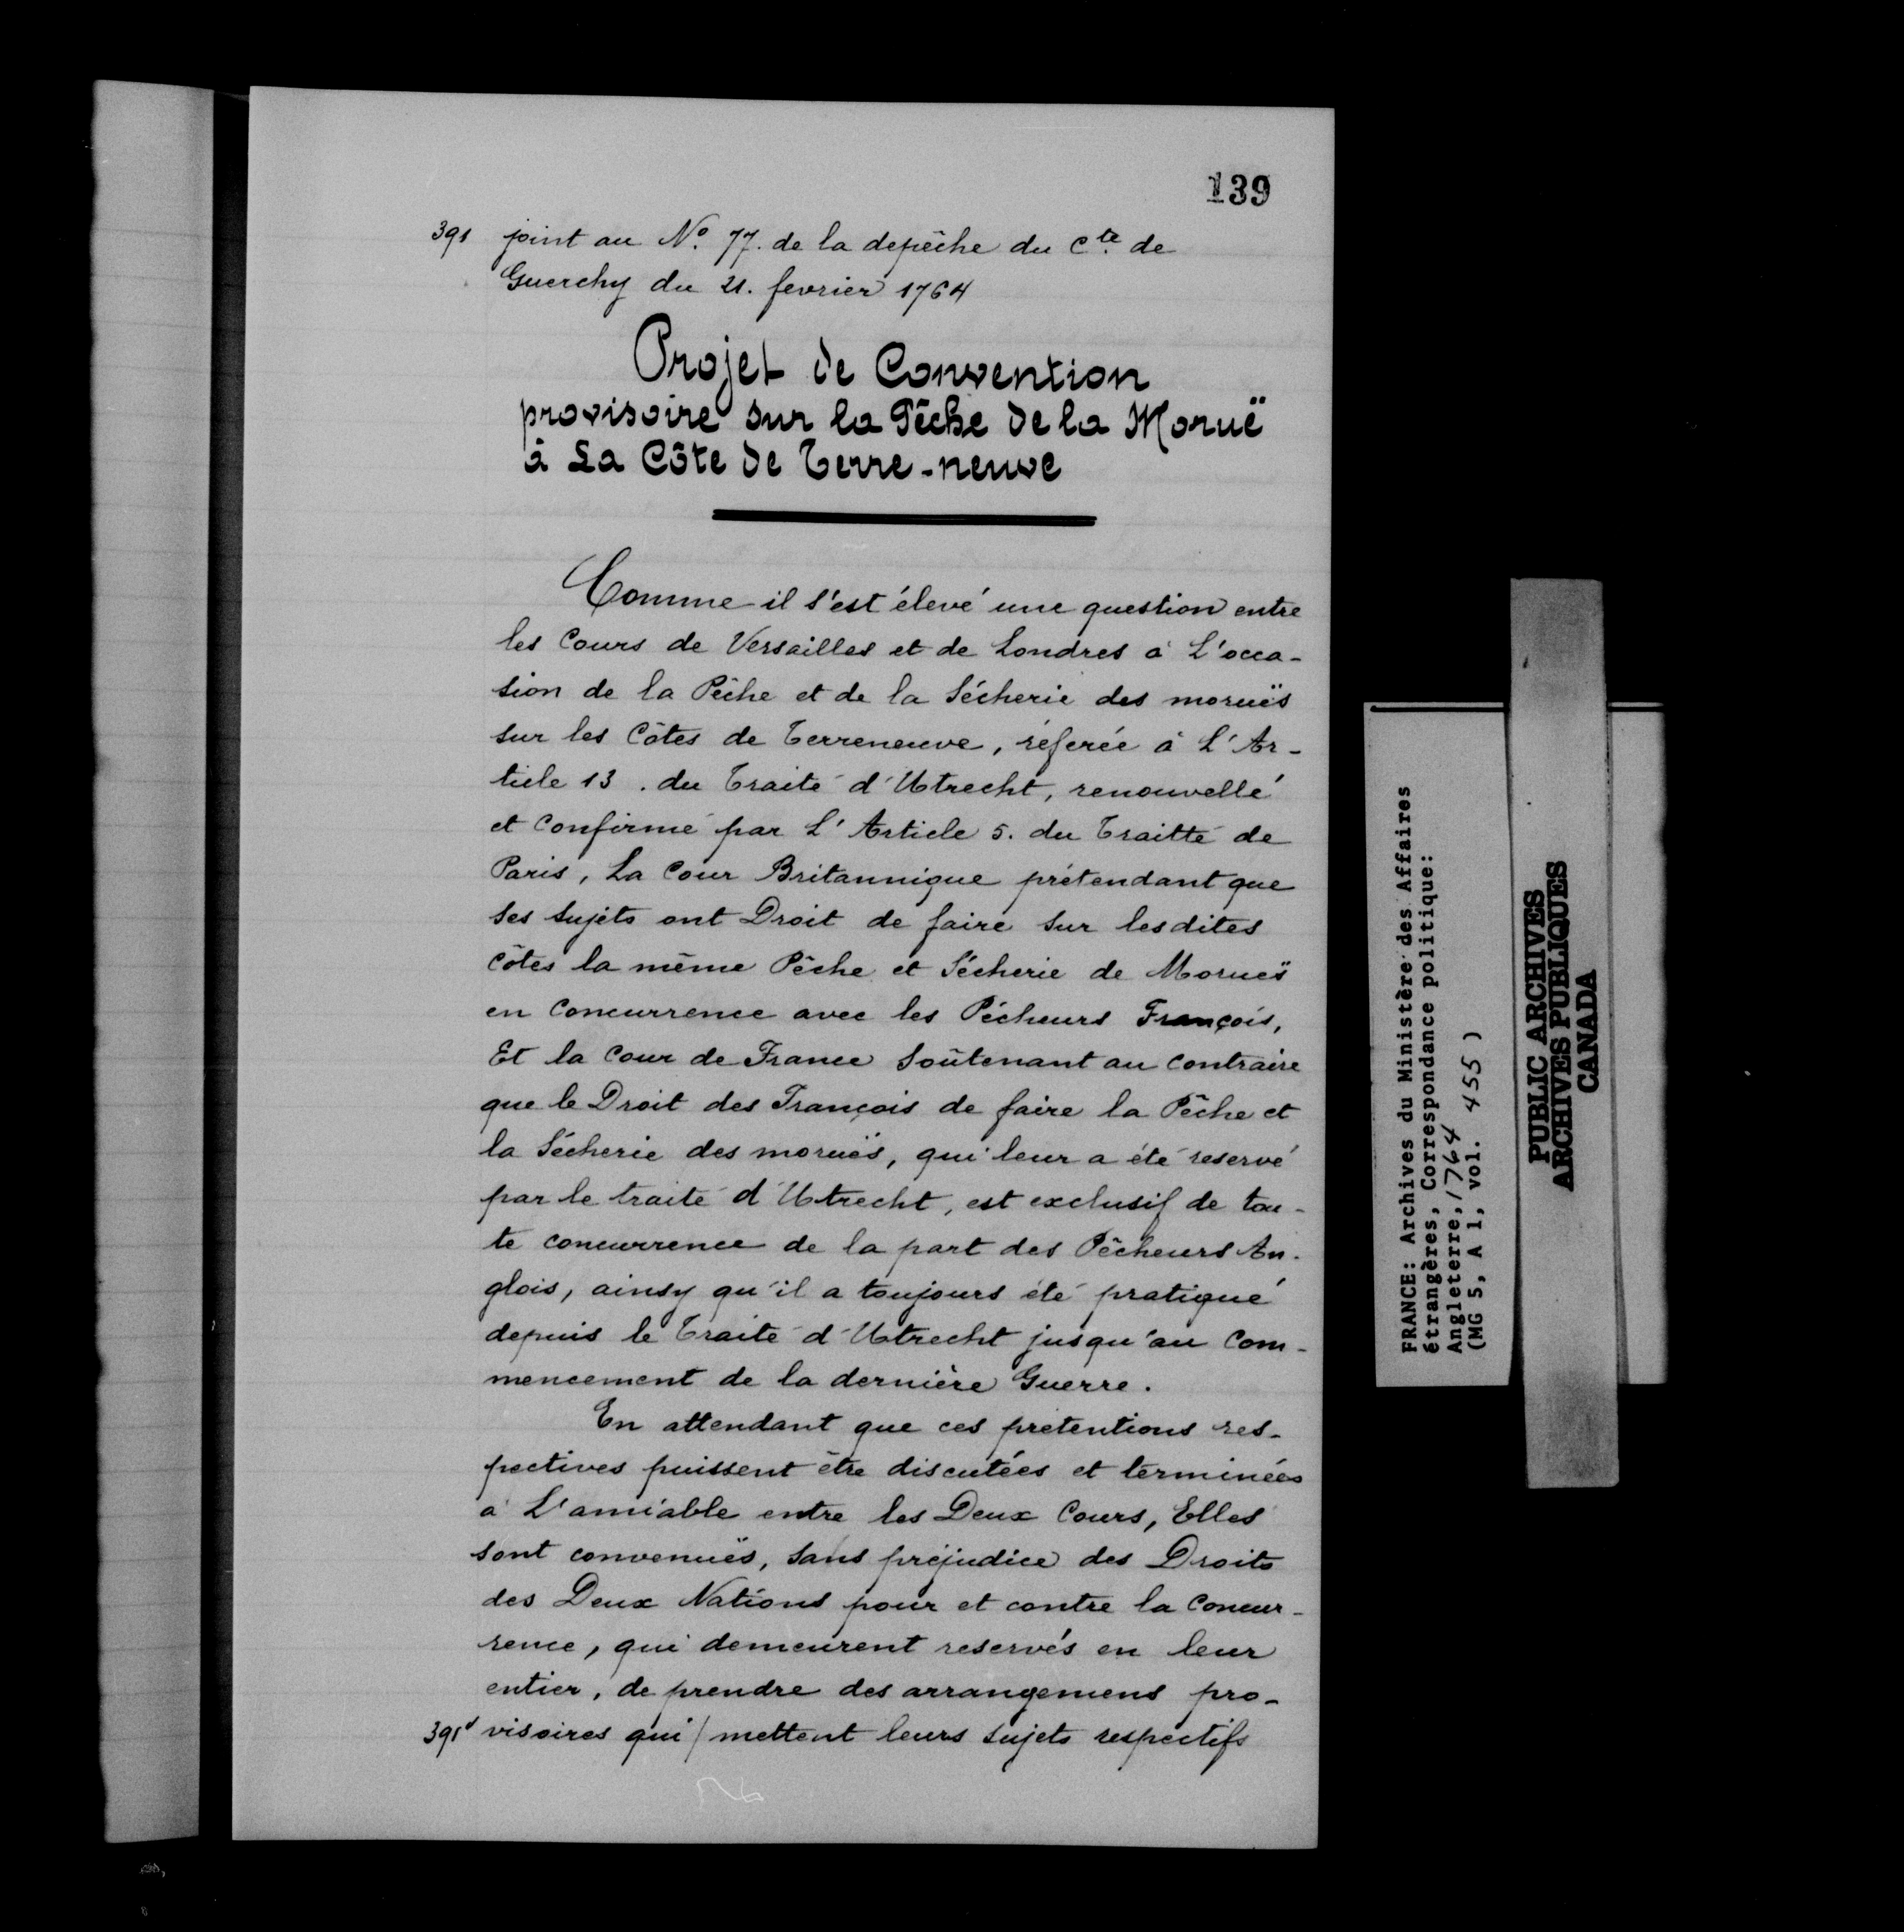 139
391 joint au N.º 77. de la depêche du C.te de
Guerchy du 21. fevrier 1764
Projet de Convention
provisoire sur la Pêche de la Moruë
à La Côte de Terre-neuve
Comme il s'est élevé une question entre
les Cours de Versailles et de Londres à L'occa-
sion de la Pêche et de la Sécherie des moruës
sur les Côtes de Terreneuve, réferée à L'Ar-
ticle 13. du Traité d'Utrecht, renouvellé
et confirmé par L'Article 5. du Traitté de
Paris, La Cour Britannique prétendant que
ses sujets ont Droit de faire sur lesdites
côtes la même Pêche et Sécherie de Moruës
en Concurrence avec les Pécheurs François,
Et la Cour de France soûtenant au contraire
que le Droit des François de faire la Pêche et
la Sécherie des moruës, qui leur a été reservé
par le traité d'Utrecht, est exclusif de tou-
te concurrence de la part des Pêcheurs An-
glois, ainsy qu'il a toujours été pratiqué
depuis le Traité d'Utrecht jusqu'au Com-
mencement de la dernière Guerre.
En attendant que ces prétentions res-
pectives puissent être discutées et terminées
à L'amiable entre les Deux Cours, Elles
sont convenuës, sans préjudice des Droits
des Deux Nations pour et contre la Concur-
rence, qui demeurent reservés en leur
entier, de prendre des arrangemens pro-
391v visoires qui / mettent leurs sujets respectifs
FRANCE: Archives du Ministère des Affaires
étrangères, Correspondance politique:
Angleterre, 1764
(MG 5, A 1, vol. 455 )
PUBLIC ARCHIVES
ARCHIVES PUBLIQUES
CANADA